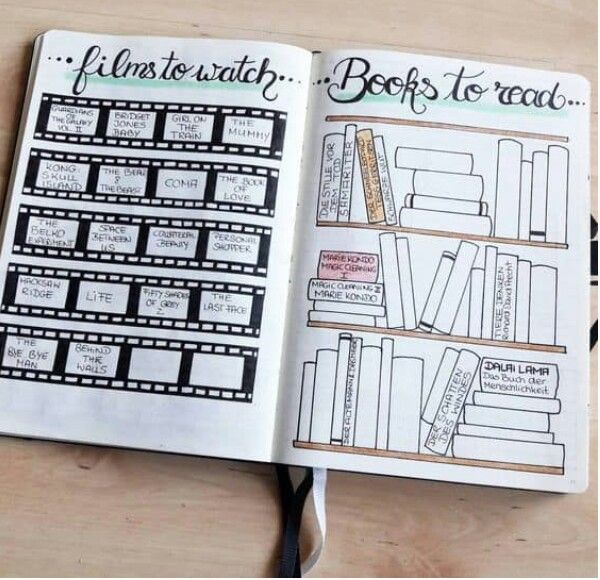 ...films to watch...
GUARDIANS
OF
THE GALAXY
VOL. II
BRIDGET
JONES
BABY
GIRL ON
THE
TRAIN
THE
MUMMY
KONG:
SKULL
ISLAND
THE BEAUTY
&
THE BEAST
COMA
THE BOOK
OF
LOVE
THE
BELKO
EXPERIMENT
SPACE
BETWEEN
US
COLLATERAL
BEAUTY
PERSONAL
SHOPPER
HACKSAW
RIDGE
LiFE
FIFTY SHADES
OF GREY
2
THE
LAST FACE
THE
BYE BYE
MAN
BEHIND
THE
WALLS
...Books to read...
DIE STILLE VOR
DEM TOD
SAMARITER
MARIE KONDO
MAGIC CLEANING
I
MAGIC CLEANING II
MARIE KONDO
TIERE DENKEN
Richard David Precht
DER SCHATTEN
DES WINDES
DALAI LAMA
Das Buch der
Menschlichkeit